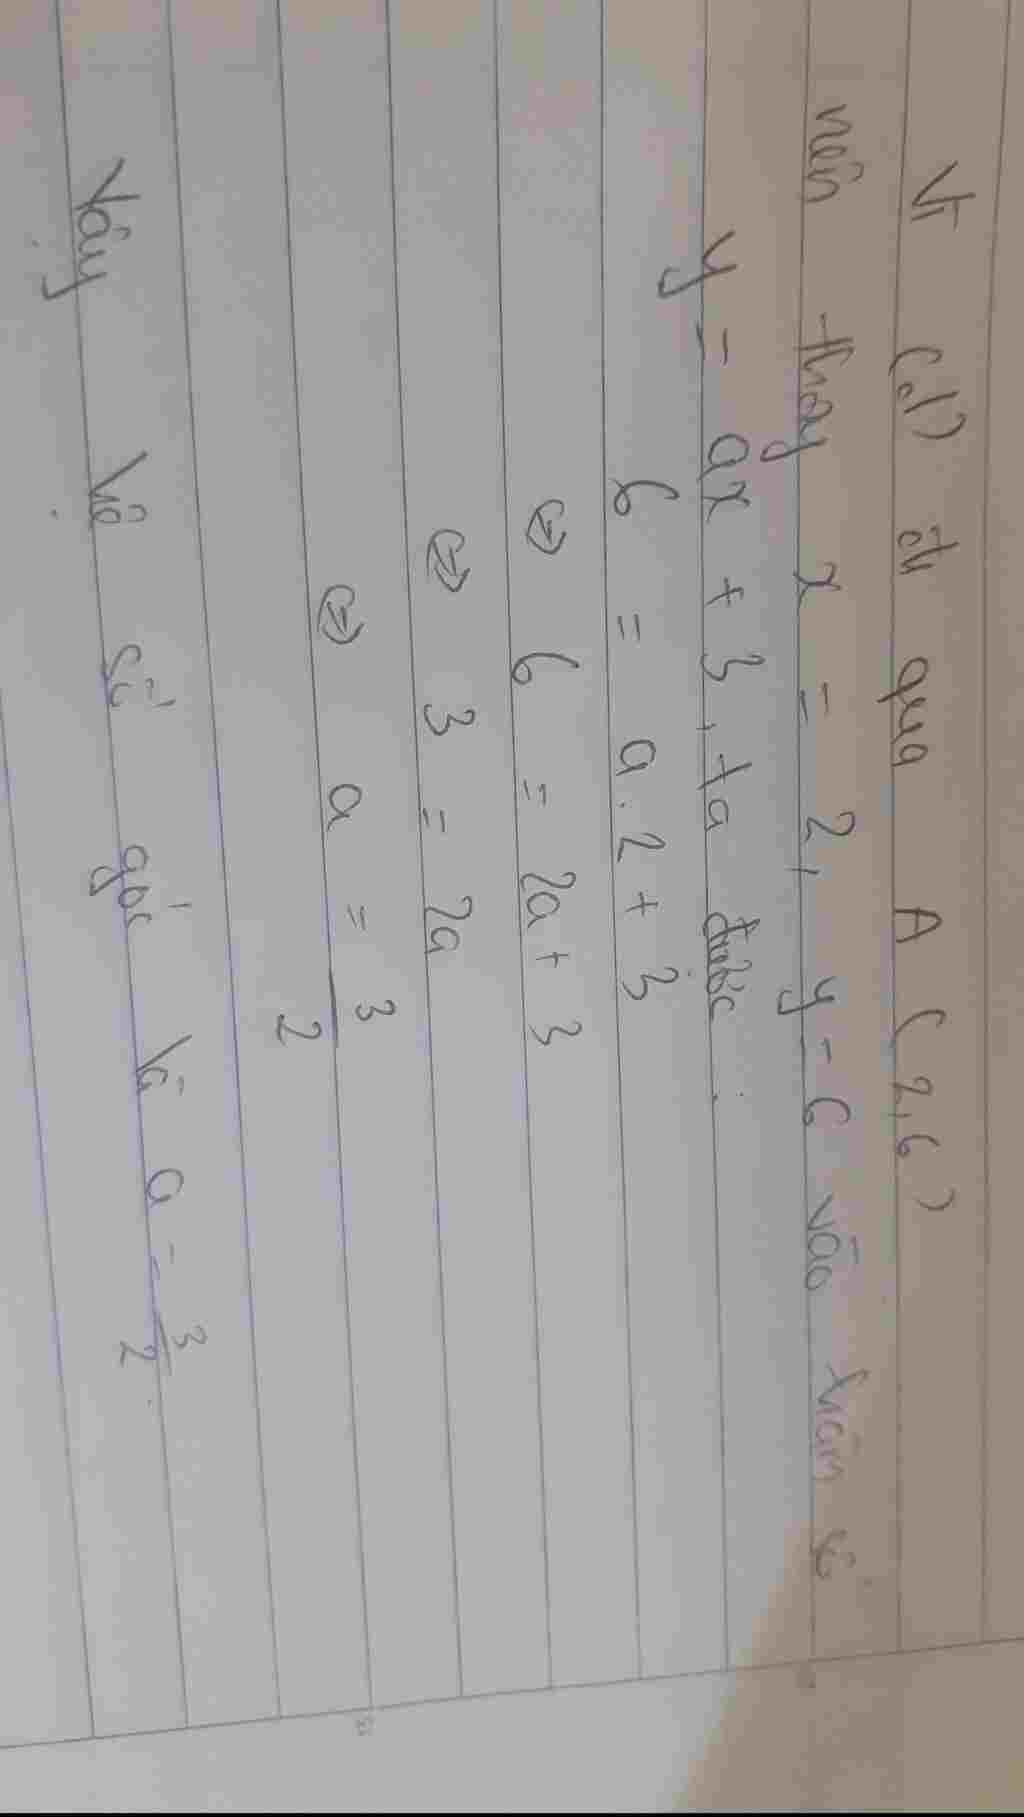 Vì (d) đi qua A (2,6)
nên thay x = 2, y = 6 vào hàm số
y = ax + 3, ta được:
6 = a.2 + 3
⇔ 6 = 2a + 3
⇔ 3 = 2a
⇔ a = 3/2
Vậy hệ số góc là a = 3/2.